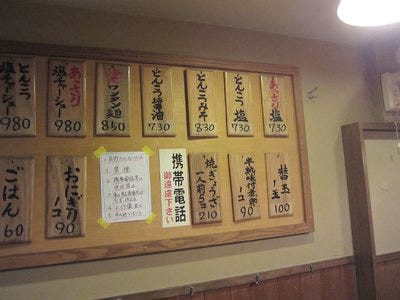 とんこう
塩チャーシュー
980
あっさり
塩チャーシュー
980
ワンタン麺
850
とんこう醤油
730
とんこうみそ
830
とんこう塩
730
あっさり塩
730
ごはん
60
おにぎり
一コ
90
携帯電話
御遠慮下さい
焼きぎょうざ
一人前5コ
210
半熟味付煮卵
一コ
90
替玉
一玉
100